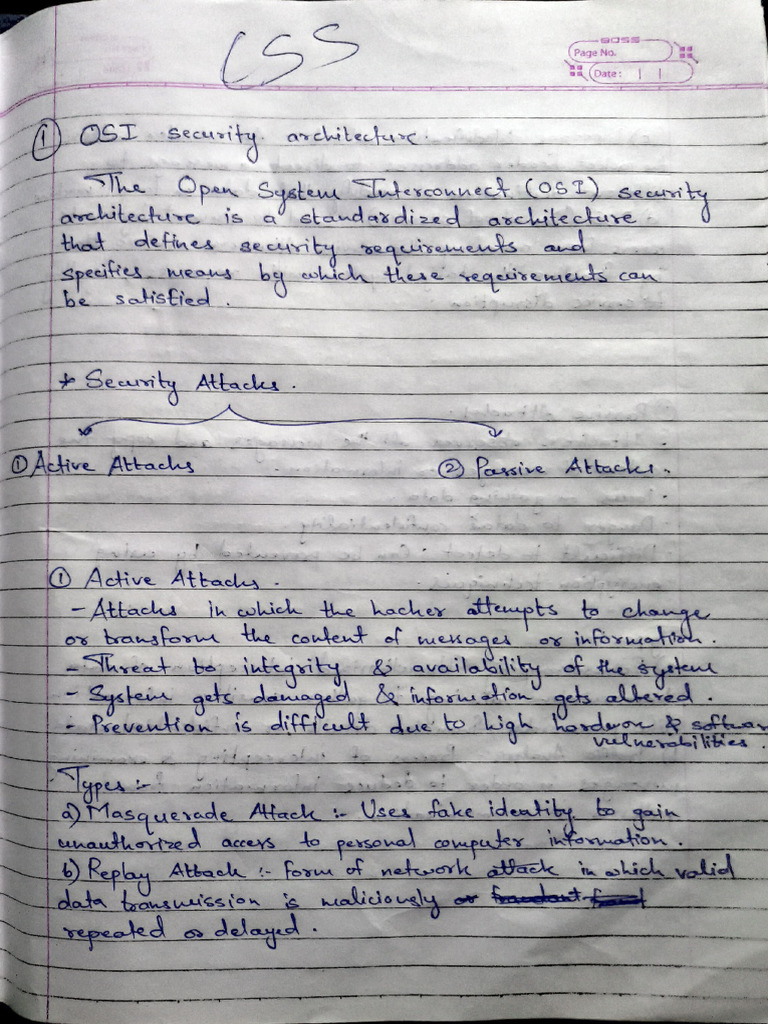 CSS
SOSS
Page No.
Date:
① OSI security architecture.
The Open System Interconnect (OSI) security
architecture is a standardized architecture
that defines security requirements and
specifies means by which these requirements can
be satisfied.
* Security Attacks.
① Active Attacks
② Passive Attacks.
① Active Attacks.
- Attacks in which the hacker attempts to change
or transform the content of messages or information.
- Threat to integrity & availability of the system
- System gets damaged & information gets altered.
- Prevention is difficult due to high hardware & software
vulnerabilities.
Types :-
a) Masquerade Attack :- Uses fake identity to gain
unauthorized access to personal computer information.
b) Replay Attack :- form of network attack in which valid
data transmission is maliciously or
repeated or delayed.